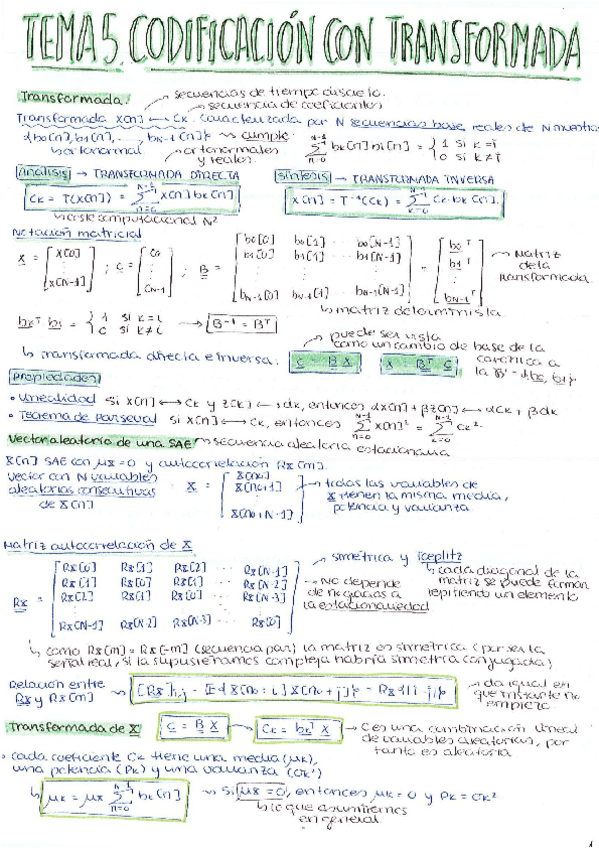 TEMA 5. CODIFICACIÓN CON TRANSFORMADA
Transformada: → secuencias de tiempo discreto.
→ secuencia de coeficientes
Transformada X[n] ↔ Ck. Caracterizada por N secuencias base reales de N muestras
{b0[n], b1[n], ... bN-1[n]} ↝ cumple: Σ(n=0, N-1) bk[n] bi[n] = { 1 si k=i
0 si k≠i
↳ ortonormal → ortonormales
y reales.
Análisis → TRANSFORMADA DIRECTA
Síntesis → TRANSFORMADA INVERSA
Ck = T(X[n]) = Σ(n=0, N-1) X[n] bk[n]
X[n] = T⁻¹(Ck) = Σ(k=0, N-1) Ck·bk[n].
↳ coste computacional N²
Notación matricial
X = [X[0] ⋮ X[N-1]] ; C = [C0 ⋮ CN-1] ; B = [b0[0] b0[1] ... b0[N-1]
b1[0] b1[1] ... b1[N-1]
⋮
bN-1[0] bN-1[1] ... bN-1[N-1]] = [b0ᵀ b1ᵀ ⋮ bN-1ᵀ] → Matriz
de la
transformada.
↳ matriz determinista.
bkᵀ bi = { 1 si k=i
0 si k≠i → B⁻¹ = Bᵀ
→ puede ser vista
como un cambio de base de la
canónica a
↳ transformada directa e inversa: C = B X X = Bᵀ C
Propiedades
• Linealidad si X[n] ↔ Ck y Z[k] ↔ dk, entonces αX[n] + βZ[n] ↔ αCk + βdk
• Teorema de parseval si X[n] ↔ Ck, entonces Σ(n=0, N-1) X[n]² = Σ(k=0, N-1) Ck².
Vector aleatorio de una SAE → secuencia aleatoria estacionaria
X[n] SAE con μx = 0 y autocorrelación Rx[m].
Vector con N variables
aleatorias consecutivas
de X[n]
X = [X[n0] X[n0+1] ⋮ X[n0+N-1]] → todas las variables de
X tienen la misma media,
potencia y varianza.
Matriz autocorrelación de X
→ simétrica y Toeplitz
Rx = [Rx[0] Rx[1] Rx[2] ... Rx[N-1]
Rx[1] Rx[0] Rx[1] ... Rx[N-2]
Rx[2] Rx[1] Rx[0] ... Rx[N-3]
⋮
Rx[N-1] Rx[N-2] Rx[N-3] ... Rx[0]]
→ No depende
de n0 gracias a
la estacionariedad
↳ cada diagonal de la
matriz se puede formar
repitiendo un elemento
↳ como Rx[m] = Rx[-m] (secuencia par) la matriz es simétrica (por ser la
señal real, si la supusiéramos compleja habría simetría conjugada)
Relación entre
Rx y Rx[m]
→ [Rx]i,j = E{X[n0+i] X[n0+j]} = Rx[|i-j|] → da igual en
que instante n0
empiezo
Transformada de X C = B X Ck = bkᵀ X → C es una combinación lineal
de variables aleatorias, por
tanto es aleatoria
• cada coeficiente Ck tiene una media (μk),
una potencia (Pk) y una varianza (σk²)
↳ μk = μx Σ(n=0, N-1) bk[n] ↝ si μx = 0, entonces μk = 0 y Pk = σk²
↳ lo que asumiremos
en general.
1